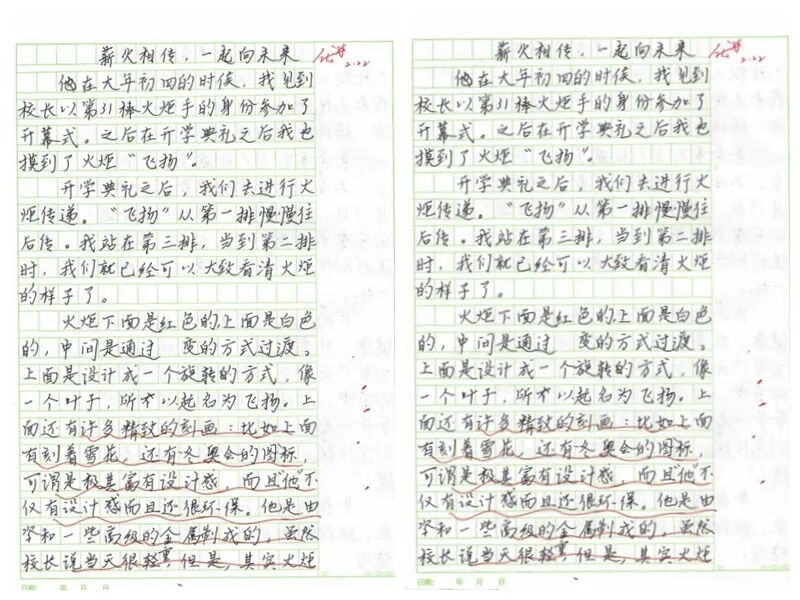 薪火相传，一起向未来
2.22
他在大年初四的时侯，我见到
校长以第31棒火炬手的身份参加了
开幕式。之后在开学典礼之后我也
摸到了火炬“飞扬”。
开学典礼之后，我们去进行火
炬传递。“飞扬”从第一排慢慢往
后传。我站在第三排，当到第二排
时，我们就已经可以大致看清火炬
的样子了。
火炬下面是红色的，上面是白色
的，中间是通过 变的方式过渡。
上面是设计成一个旋转的方式，像
一个叶子，所才以起名为飞扬。上
面还有许多精致的刻画：比如上面
有刻着雪花，还有冬奥会的图标，
可谓是极其富有设计感，而且“他”不
仅有设计感而且还很环保。他是由
和一些高级的金属制成的，虽然
校长说当天很轻，但是，其实火炬
日期： 年 月 日
薪火相传，一起向未来
2.22
他在大年初四的时侯，我见到
校长以第31棒火炬手的身份参加了
开幕式。之后在开学典礼之后我也
摸到了火炬“飞扬”。
开学典礼之后，我们去进行火
炬传递。“飞扬”从第一排慢慢往
后传。我站在第三排，当到第二排
时，我们就已经可以大致看清火炬
的样子了。
火炬下面是红色的，上面是白色
的，中间是通过 变的方式过渡。
上面是设计成一个旋转的方式，像
一个叶子，所才以起名为飞扬。上
面还有许多精致的刻画：比如上面
有刻着雪花，还有冬奥会的图标，
可谓是极其富有设计感，而且“他”不
仅有设计感而且还很环保。他是由
和一些高级的金属制成的，虽然
校长说当天很轻，但是，其实火炬
日期： 年 月 日